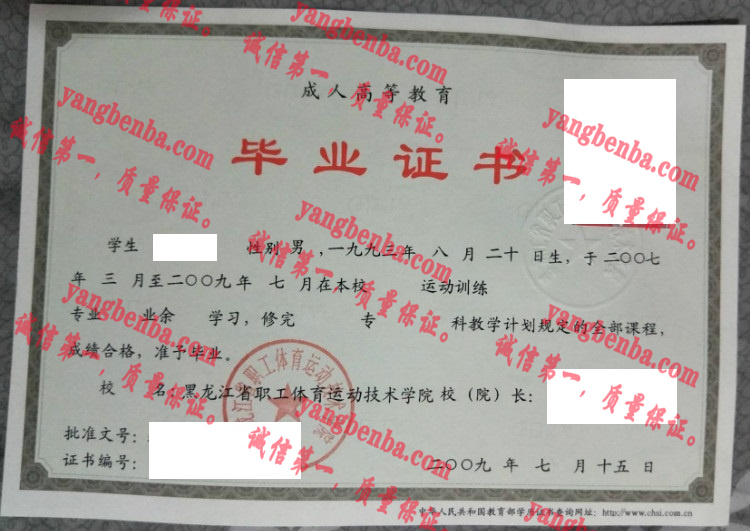 成人高等教育
毕业证书
学生 性别 男 ,一九九三年 八 月 二十 日生，于二〇〇七
年 三 月至二〇〇九年 七 月在本校 运动训练
专业 业余 学习，修完 专 科教学计划规定的全部课程，
成绩合格，准予毕业。
校 名：黑龙江省职工体育运动技术学院 校（院）长：
批准文号：
证书编号：
二〇〇九 年 七 月 十五 日
中华人民共和国教育部学历证书查询网址：http://www.chsi.com.cn
yangbenba.com
诚信第一，质量保证。
yangbenba.com
诚信第一，质量保证。
yangbenba.com
诚信第一，质量保证。
yangbenba.com
诚信第一，质量保证。
yangbenba.com
诚信第一，质量保证。
yangbenba.com
诚信第一，质量保证。
yangbenba.com
诚信第一，质量保证。
yangbenba.com
诚信第一，质量保证。
yangbenba.com
诚信第一，质量保证。